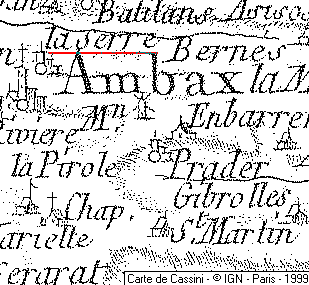 Batilans
la serre
Bernes
Ambax
la M
Mⁿ
Enbarrer
Rivière
la Pirole
Prader
Gibrolles
Chap.
St Martin
arielle
erarat
Carte de Cassini - © IGN - Paris - 1999